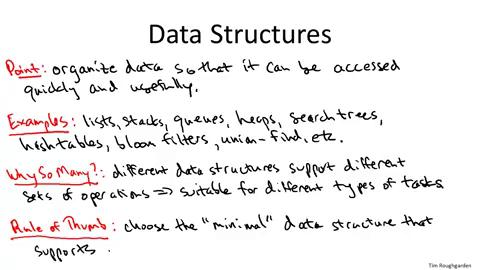 Data Structures
Point: organize data so that it can be accessed
quickly and usefully.
Examples: lists, stacks, queues, heaps, search trees,
hashtables, bloom filters, union-find, etc.
Why So Many?: different data structures support different
sets of operations => suitable for different types of tasks
Rule of Thumb: choose the "minimal" data structure that
supports
Tim Roughgarden